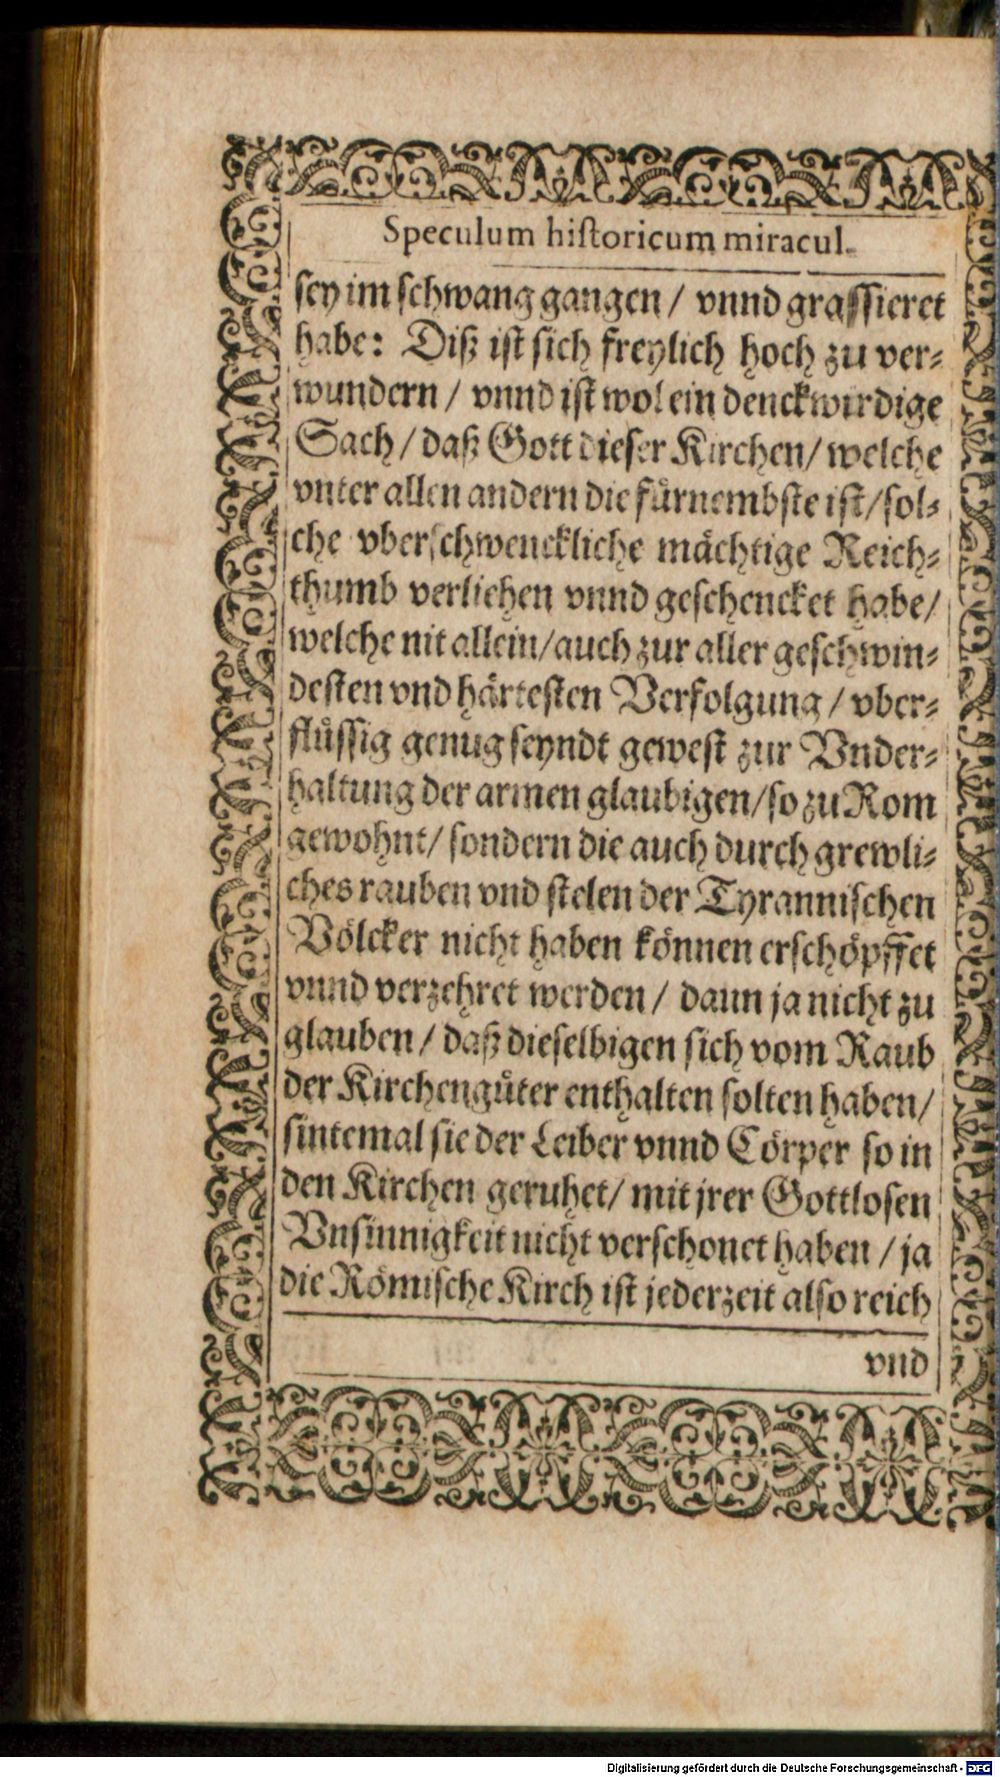 Speculum historicum miracul.
sey im schwang gangen / vnnd grassieret
habe: Diß ist sich freylich hoch zu ver-
wundern / vnnd ist wol ein denckwirdige
Sach / daß Gott dieser Kirchen / welche
vnter allen andern die fürnembste ist / sol-
che vberschwenckliche mächtige Reich-
thumb verliehen vnnd geschencket habe /
welche nit allein / auch zur aller geschwin-
desten vnd härtesten Verfolgung / vber-
flüssig genug seyndt gewest zur Vnder-
haltung der armen glaubigen / so zu Rom
gewohnt / sondern die auch durch grewli-
ches rauben vnd stelen der Tyrannischen
Völcker nicht haben können erschöpffet
vnnd verzehret werden / dann ja nicht zu
glauben / daß dieselbigen sich vom Raub
der Kirchengüter enthalten solten haben /
sintemal sie der Leiber vnnd Cörper so in
den Kirchen geruhet / mit jrer Gottlosen
Vnsinnigkeit nicht verschonet haben / ja
die Römische Kirch ist jederzeit also reich
vnd
Digitalisierung gefördert durch die Deutsche Forschungsgemeinschaft - DFG